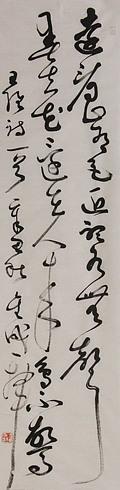 遠看山有色近聽水無聲
春去花還在人來鳥不驚
王維詩一首辛丑秋